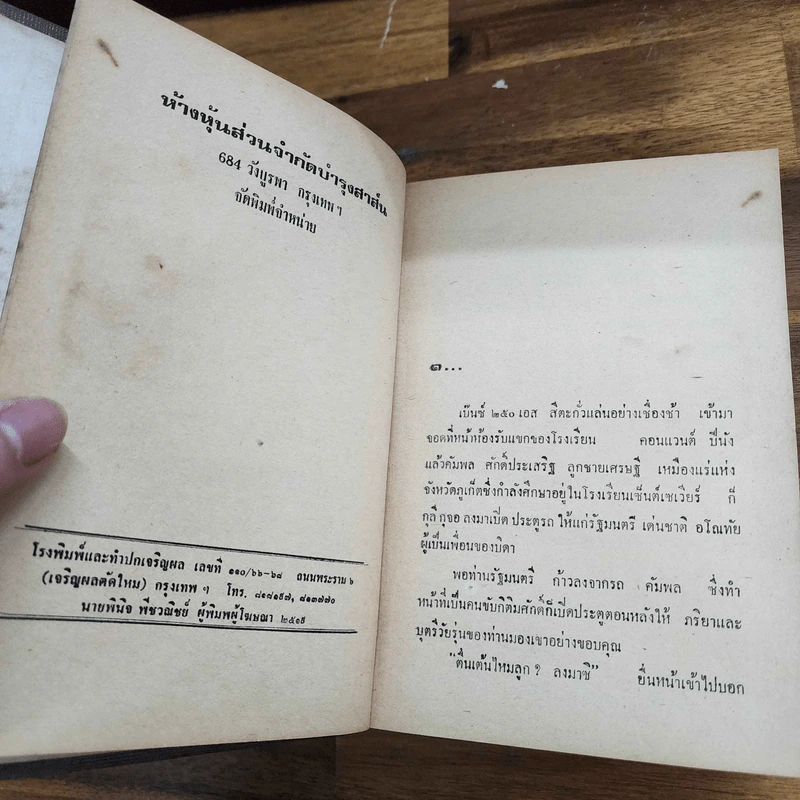 ห้างหุ้นส่วนจำกัดบำรุงสาส์น
684 วังบูรพา กรุงเทพ ฯ
จัดพิมพ์จำหน่าย
โรงพิมพ์และทำปกเจริญผล เลขที่ ๑๑๐/๖๖-๖๘ ถนนพระราม ๖
(เจริญผลตัดใหม่) กรุงเทพ ฯ โทร. ๘๑๘๑๕๗, ๘๑๓๗๗๐
นายพินิจ พืชวณิชย์ ผู้พิมพ์ผู้โฆษณา ๒๕๑๕
๑...
เบ๊นซ์ ๒๕๐ เอส สีตะกั่วแล่นอย่างเชื่องช้า เข้ามา
จอดที่หน้าห้องรับแขกของโรงเรียน คอนแวนต์ ปีนัง
แล้วคัมพล ศักดิ์ประเสริฐ ลูกชายเศรษฐี เหมืองแร่แห่ง
จังหวัดภูเก็ตซึ่งกำลังศึกษาอยู่ในโรงเรียนเซ็นต์เซเวียร์ ก็
กุลีกุจอ ลงมาเปิด ประตูรถ ให้แก่รัฐมนตรี เด่นชาติ อโณทัย
ผู้เป็นเพื่อนของบิดา
พอท่านรัฐมนตรี ก้าวลงจากรถ คัมพล ซึ่งทำ
หน้าที่เป็นคนขับกิติมศักดิ์ก็เปิดประตูตอนหลังให้ ภริยาและ
บุตรีวัยรุ่นของท่านมองเขาอย่างขอบคุณ
"ตื่นเต้นไหมลูก ? ลงมาซิ" ยื่นหน้าเข้าไปบอก